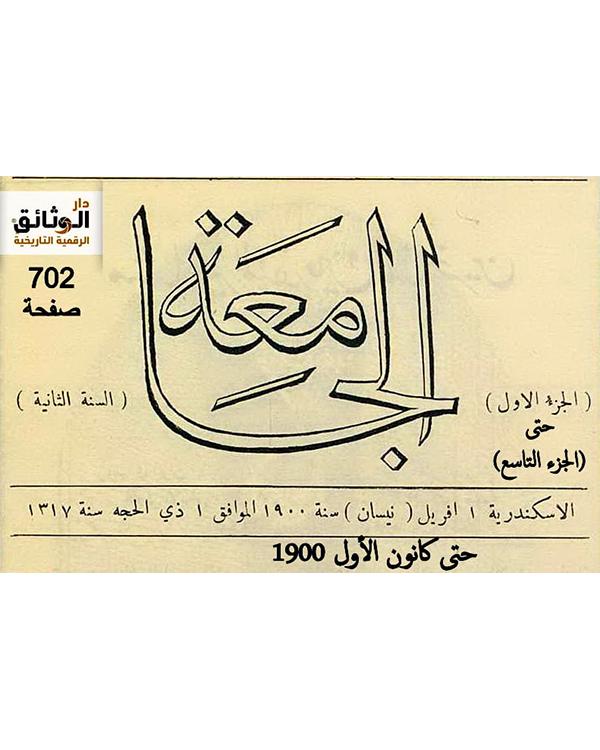 دار
الوثائق
الرقمية التاريخية
702
صفحة
الجامعة
( الجزء الاول )
حتى
(الجزء التاسع)
( السنة الثانية )
الاسكندرية ١ افريل ( نيسان ) سنة ١٩٠٠ الموافق ١ ذي الحجه سنة ١٣١٧
حتى كانون الأول 1900